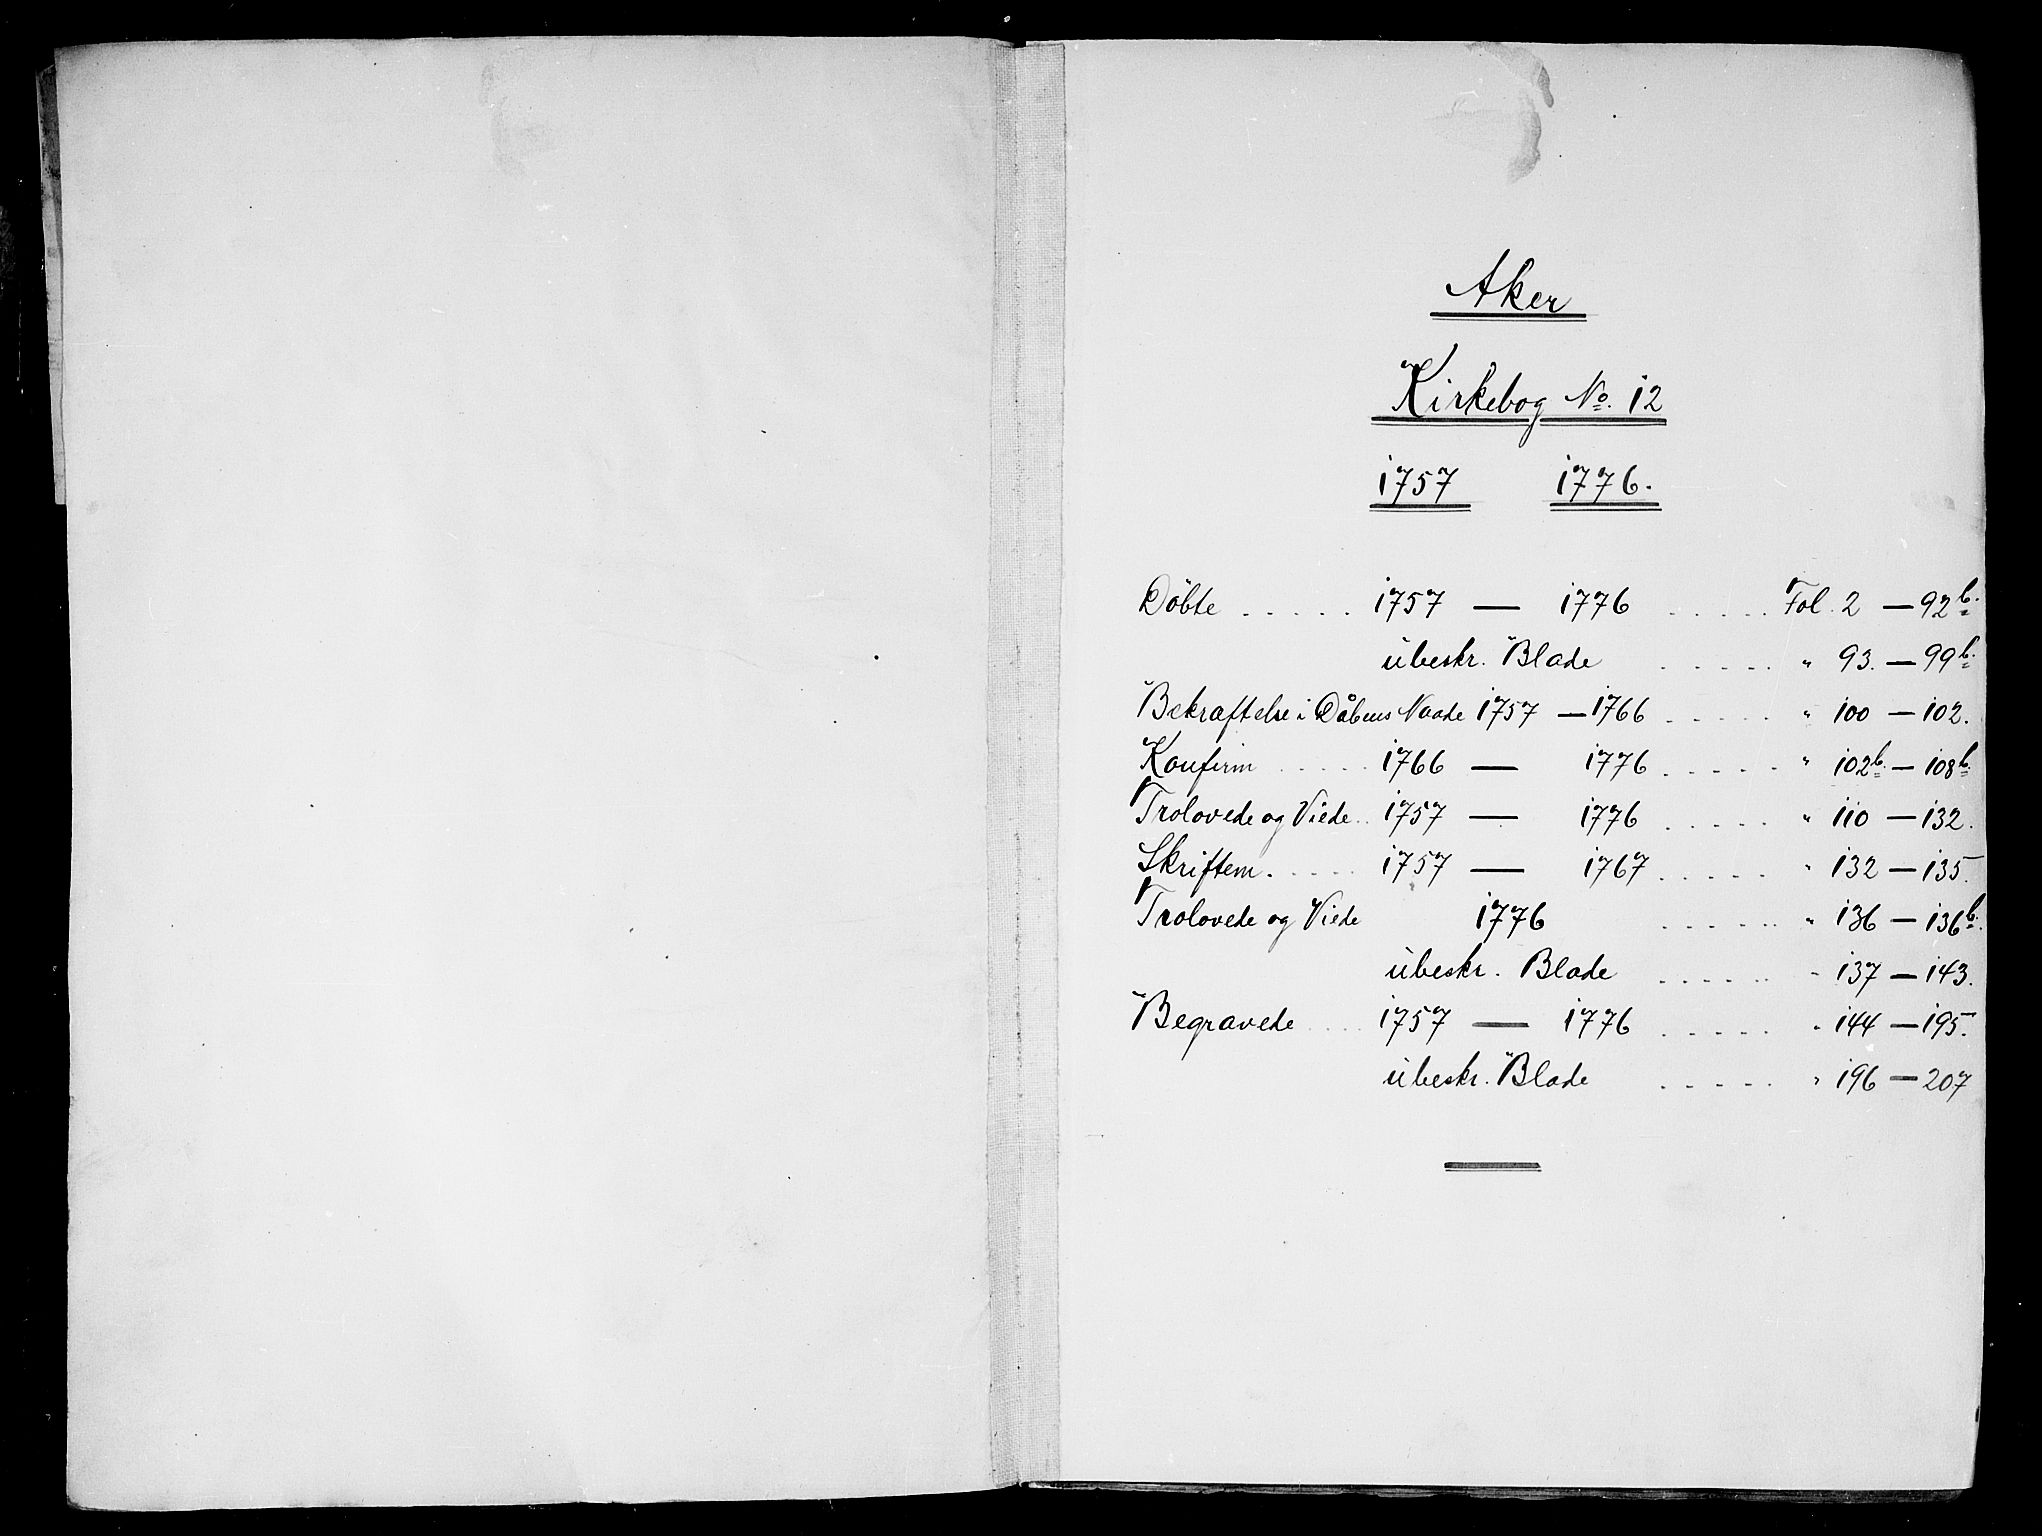 Aker
Kirkebog No. 12
1757 1776.
Döbte ..... 1757 — 1776 ..... Fol. 2 — 92b.
ubeskr. Blade ..... " 93. — 99b.
Bekræftelse i Dåbens Naade 1757 — 1766 ..... " 100 — 102.
Konfirm ..... 1766 — 1776 ..... " 102b. — 108b.
Trolovede og Viede .. 1757 — 1776 ..... " 110 — 132.
Skriftem. ..... 1757 — 1767 ..... " 132 — 135.
Trolovede og Viede 1776 ..... " 136 — 136b.
ubeskr. Blade ..... " 137 — 143.
Begravede .... 1757 — 1776 ..... " 144 — 195.
ubeskr. Blade ..... " 196 — 207